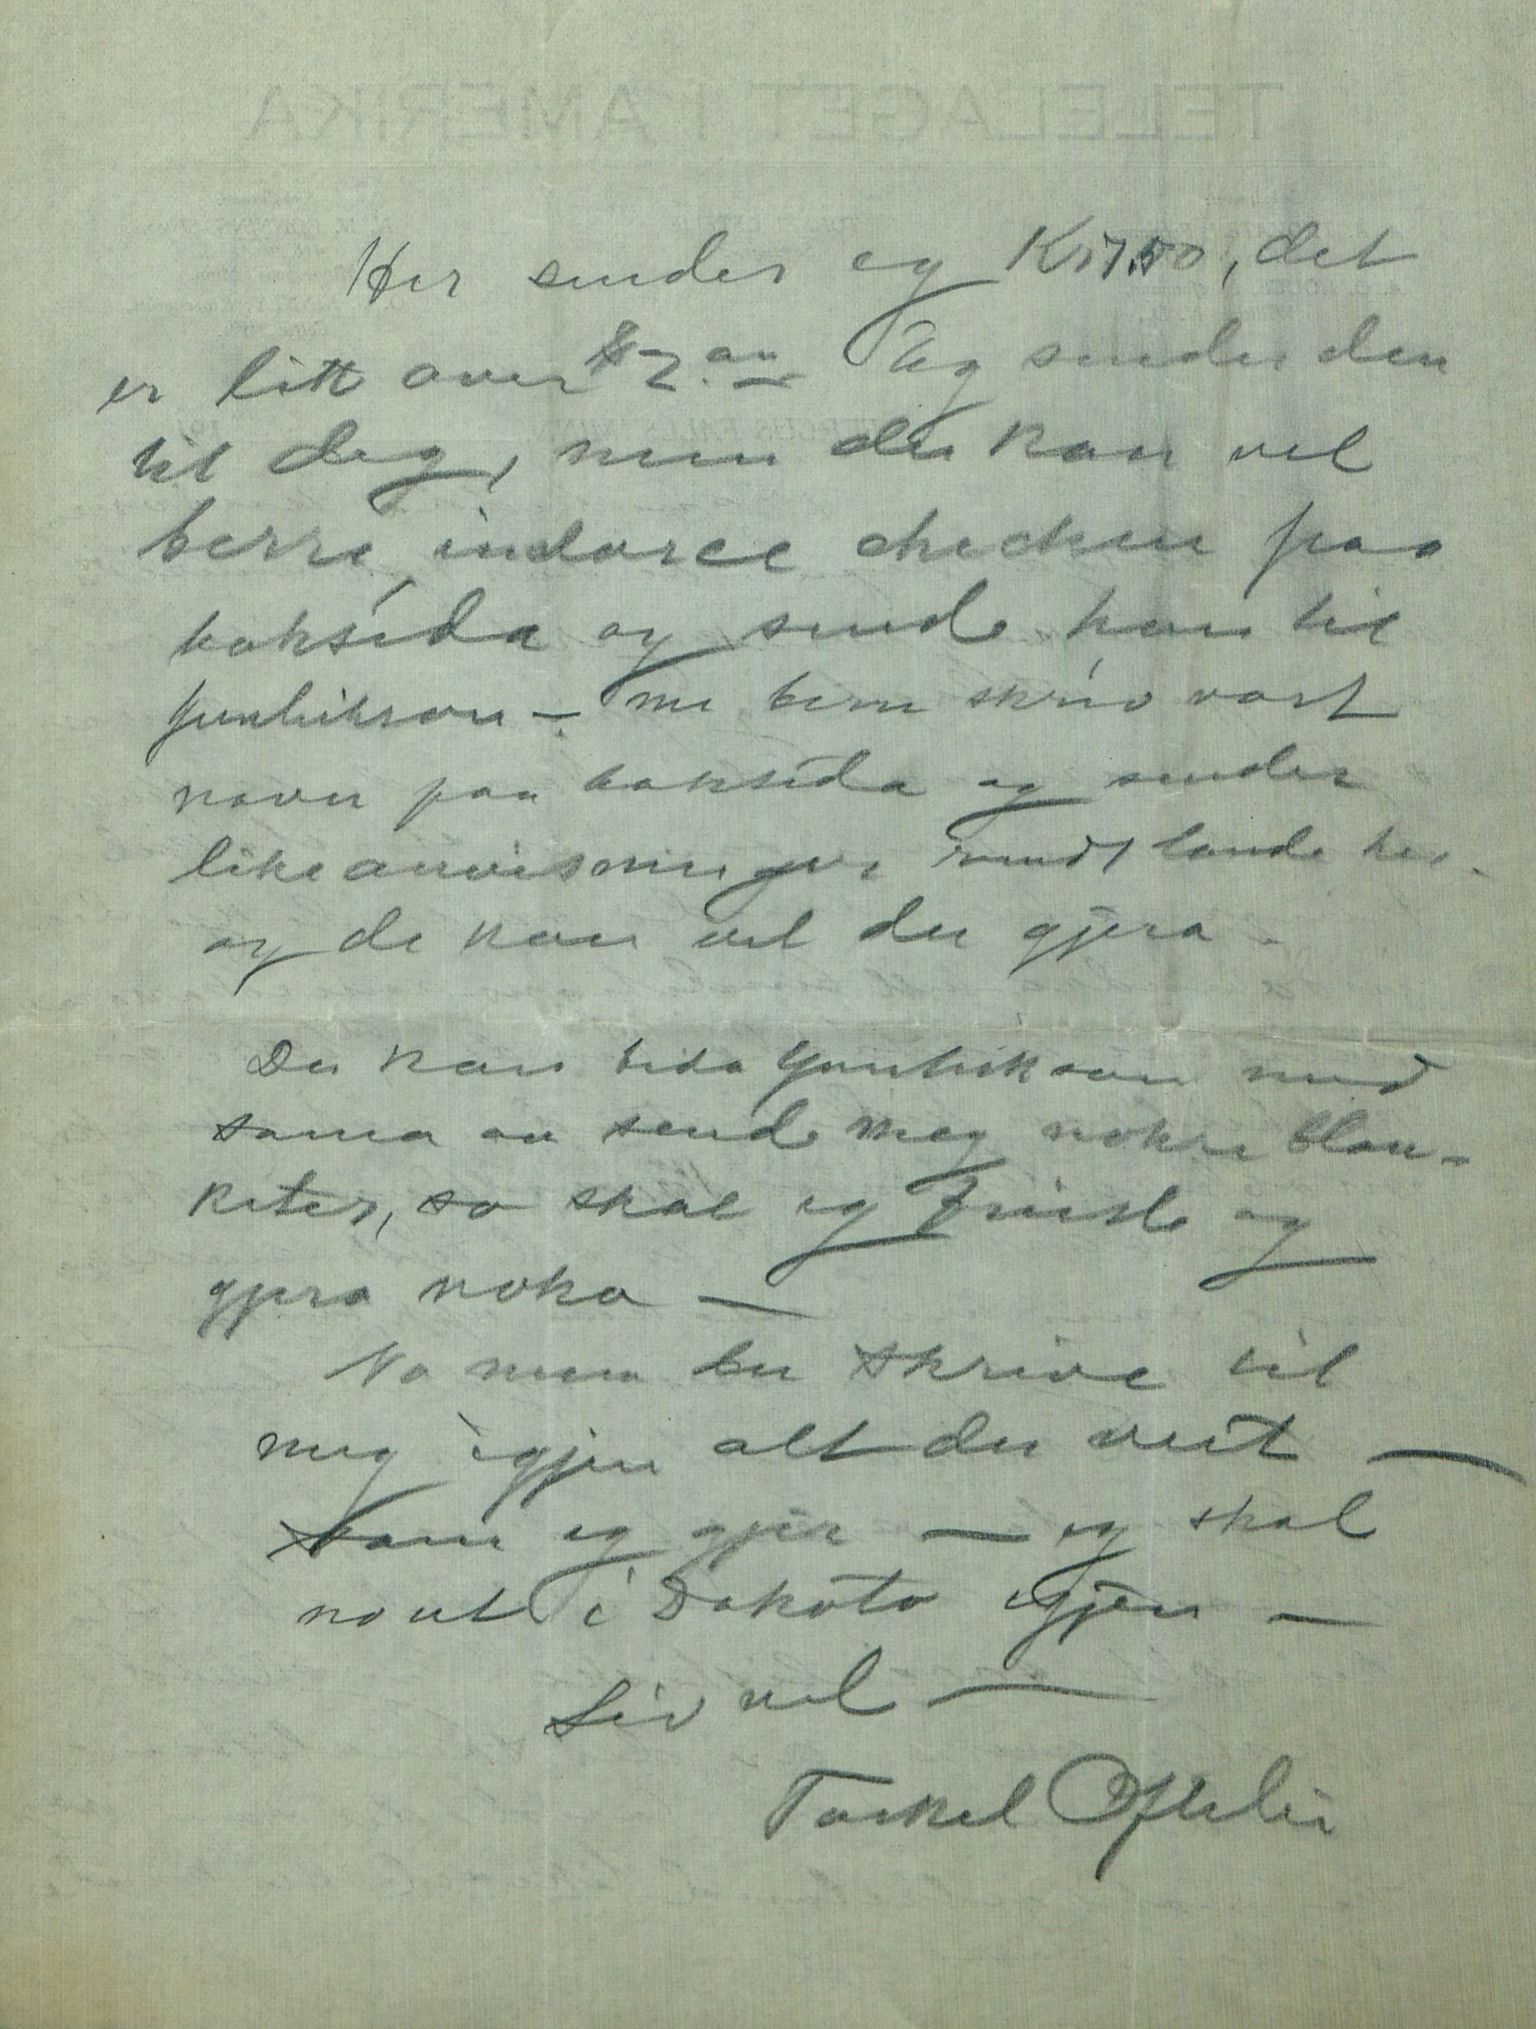 Her sender eg Kr 7,50, det
er litt over $2.00 Eg sender den
til deg, men du kan vel
berre indorce checken paa
baksida og sende han til
– me berre skriv vort
navn paa baksida og sender
like anvisninger rundt lande her.
og de kan vel du gjera –
Du kan beda med
sama aa sende meg nokre blan-
keter, so skal eg friste og
gjera noko –
No maa du skrive til
meg igjen alt du veit –
som eg gjer – eg skal
no ut i Dakota igjen –
Liv vel –
Torkel Oftelie
TELELAGET I AMERIKA